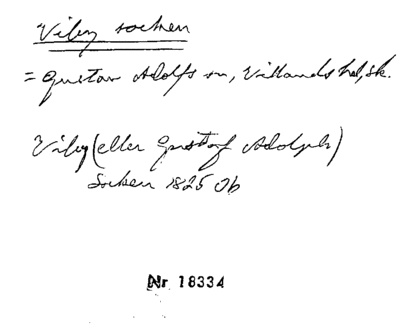 Viby socken
= Gustav Adolfs sn, Villands hd, Sk.
Viby (eller Gustaf Adolphs)
Socken 1825 Ob
Nr 18334